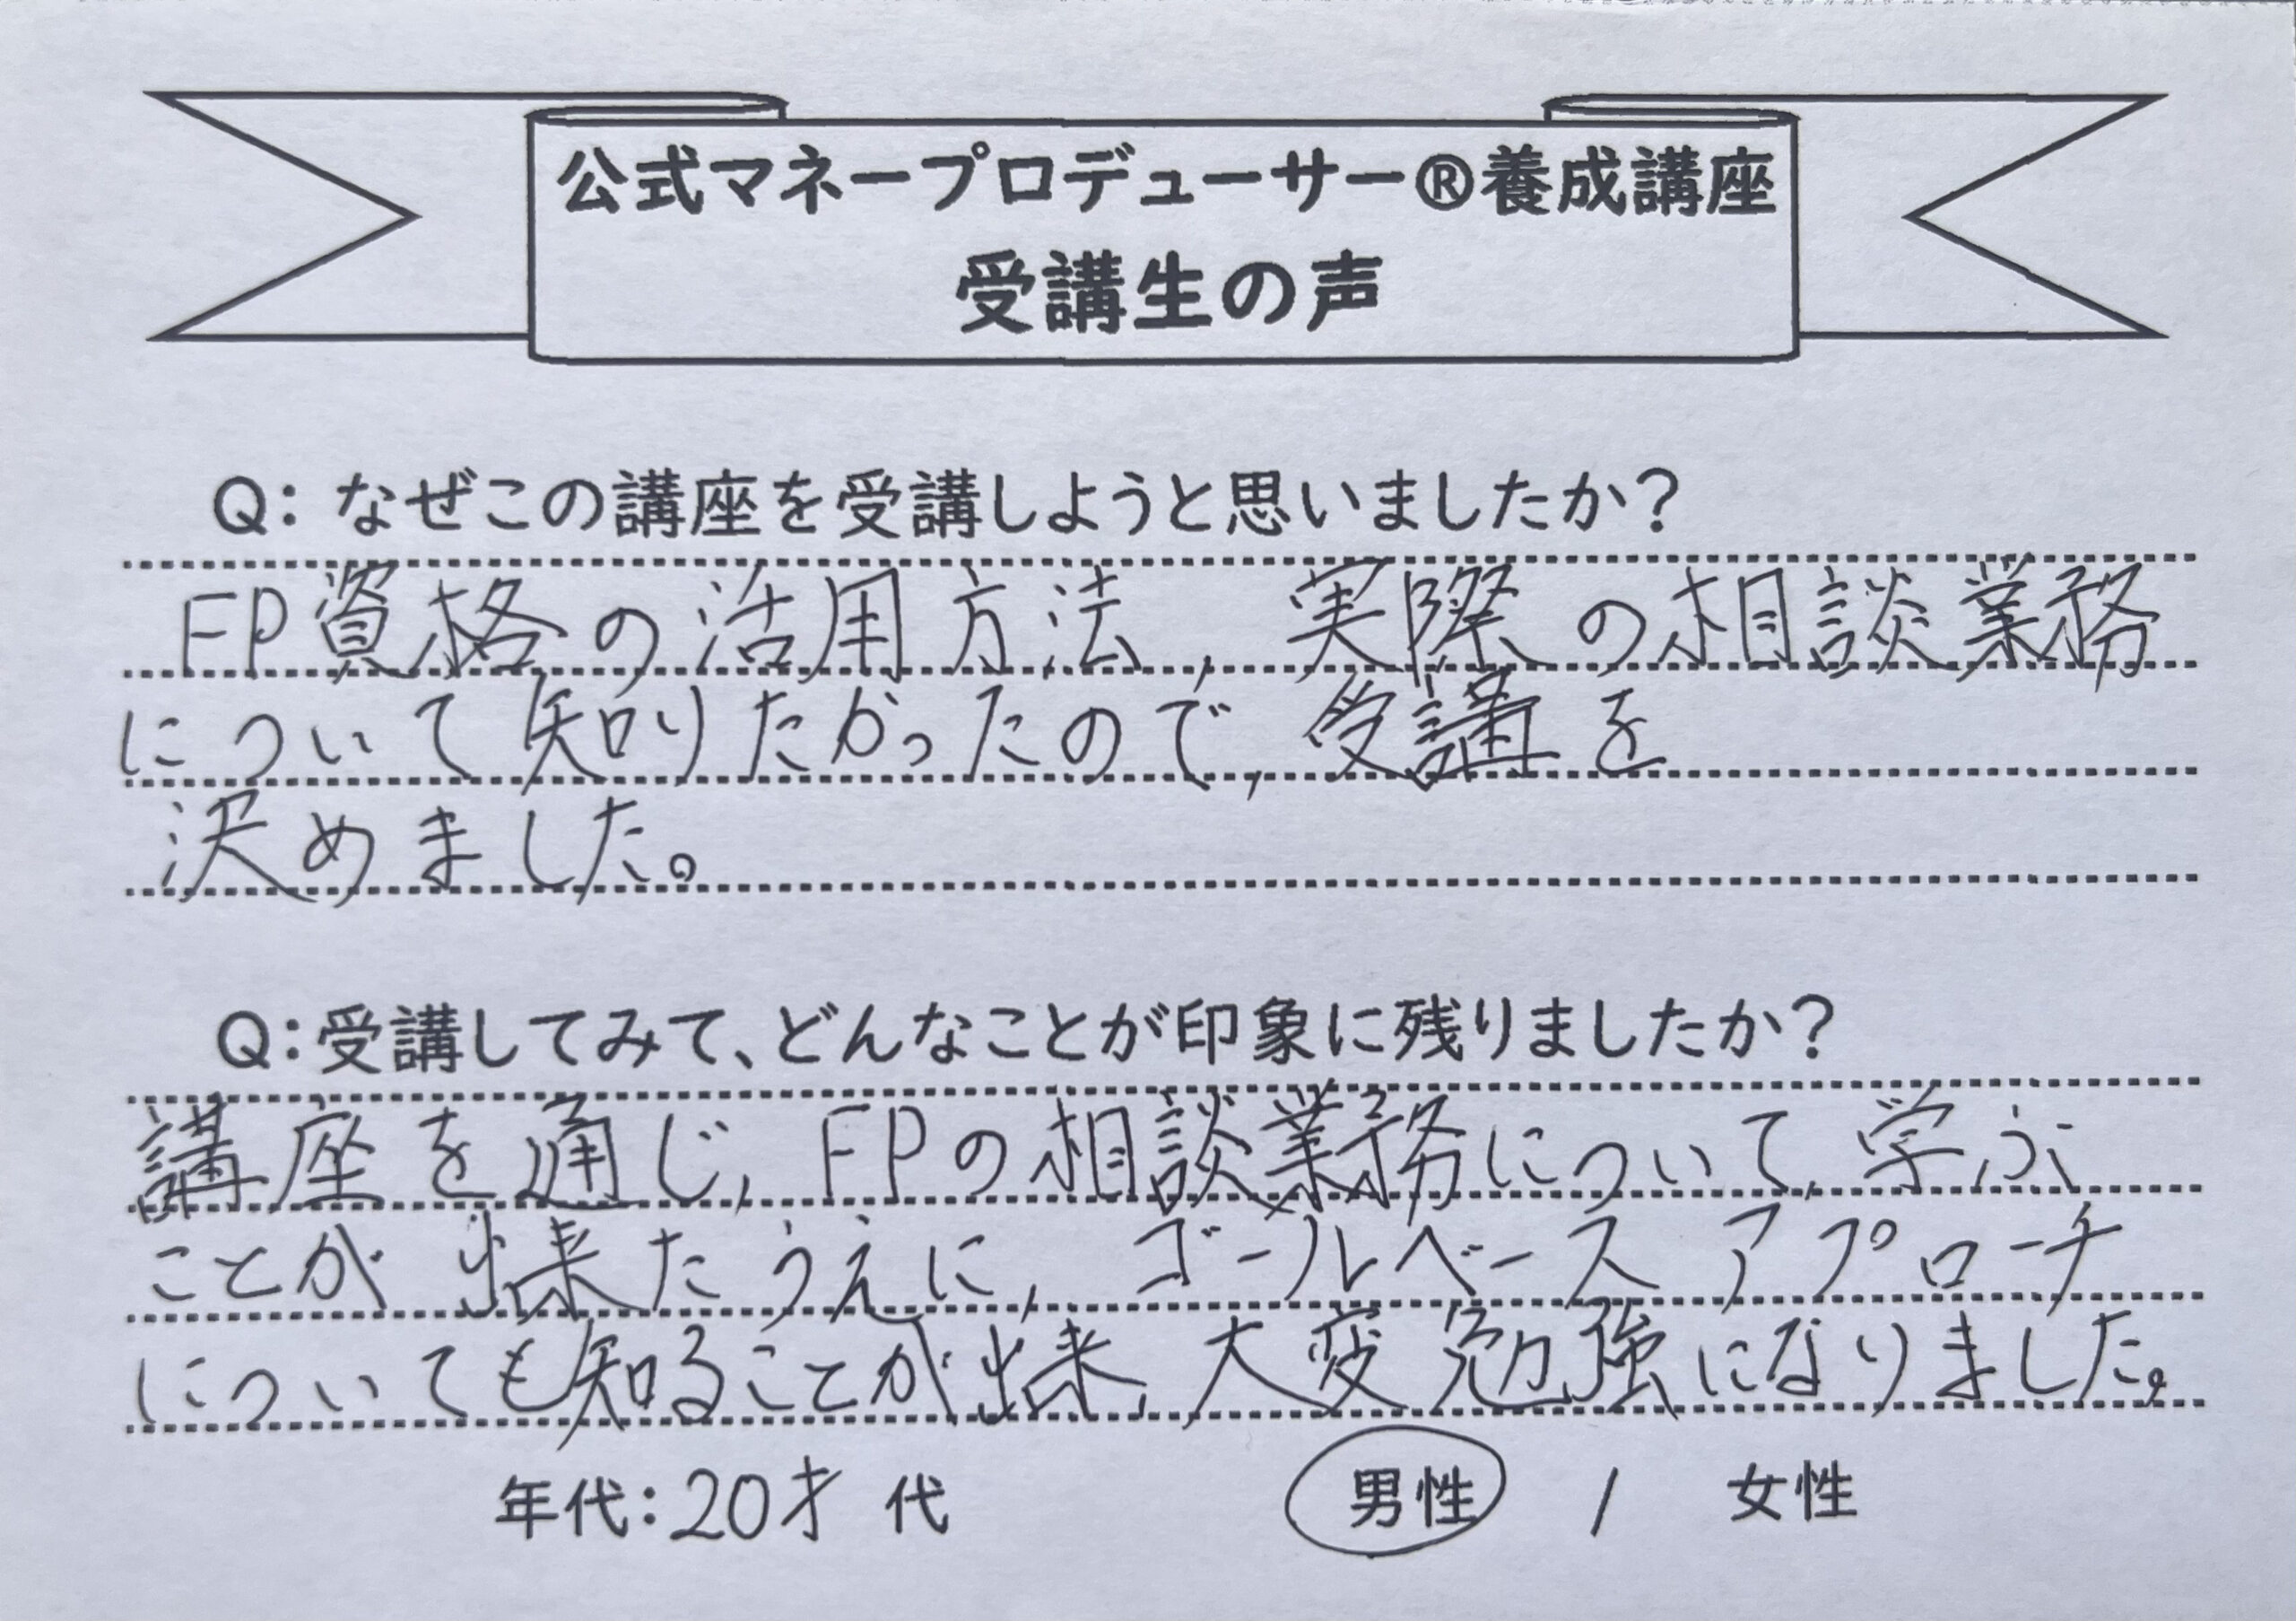 公式マネープロデューサー®養成講座
受講生の声
Q: なぜこの講座を受講しようと思いましたか?
FP資格の活用方法,実際の相談業務
について知りたかったので,受講を
決めました。
Q:受講してみて、どんなことが印象に残りましたか?
講座を通じ,FPの相談業務について,学ぶ
ことが出来たうえに,ゴールベースアプローチ
についても知ることが出来,大変勉強になりました。
年代:20才 代 男性 / 女性